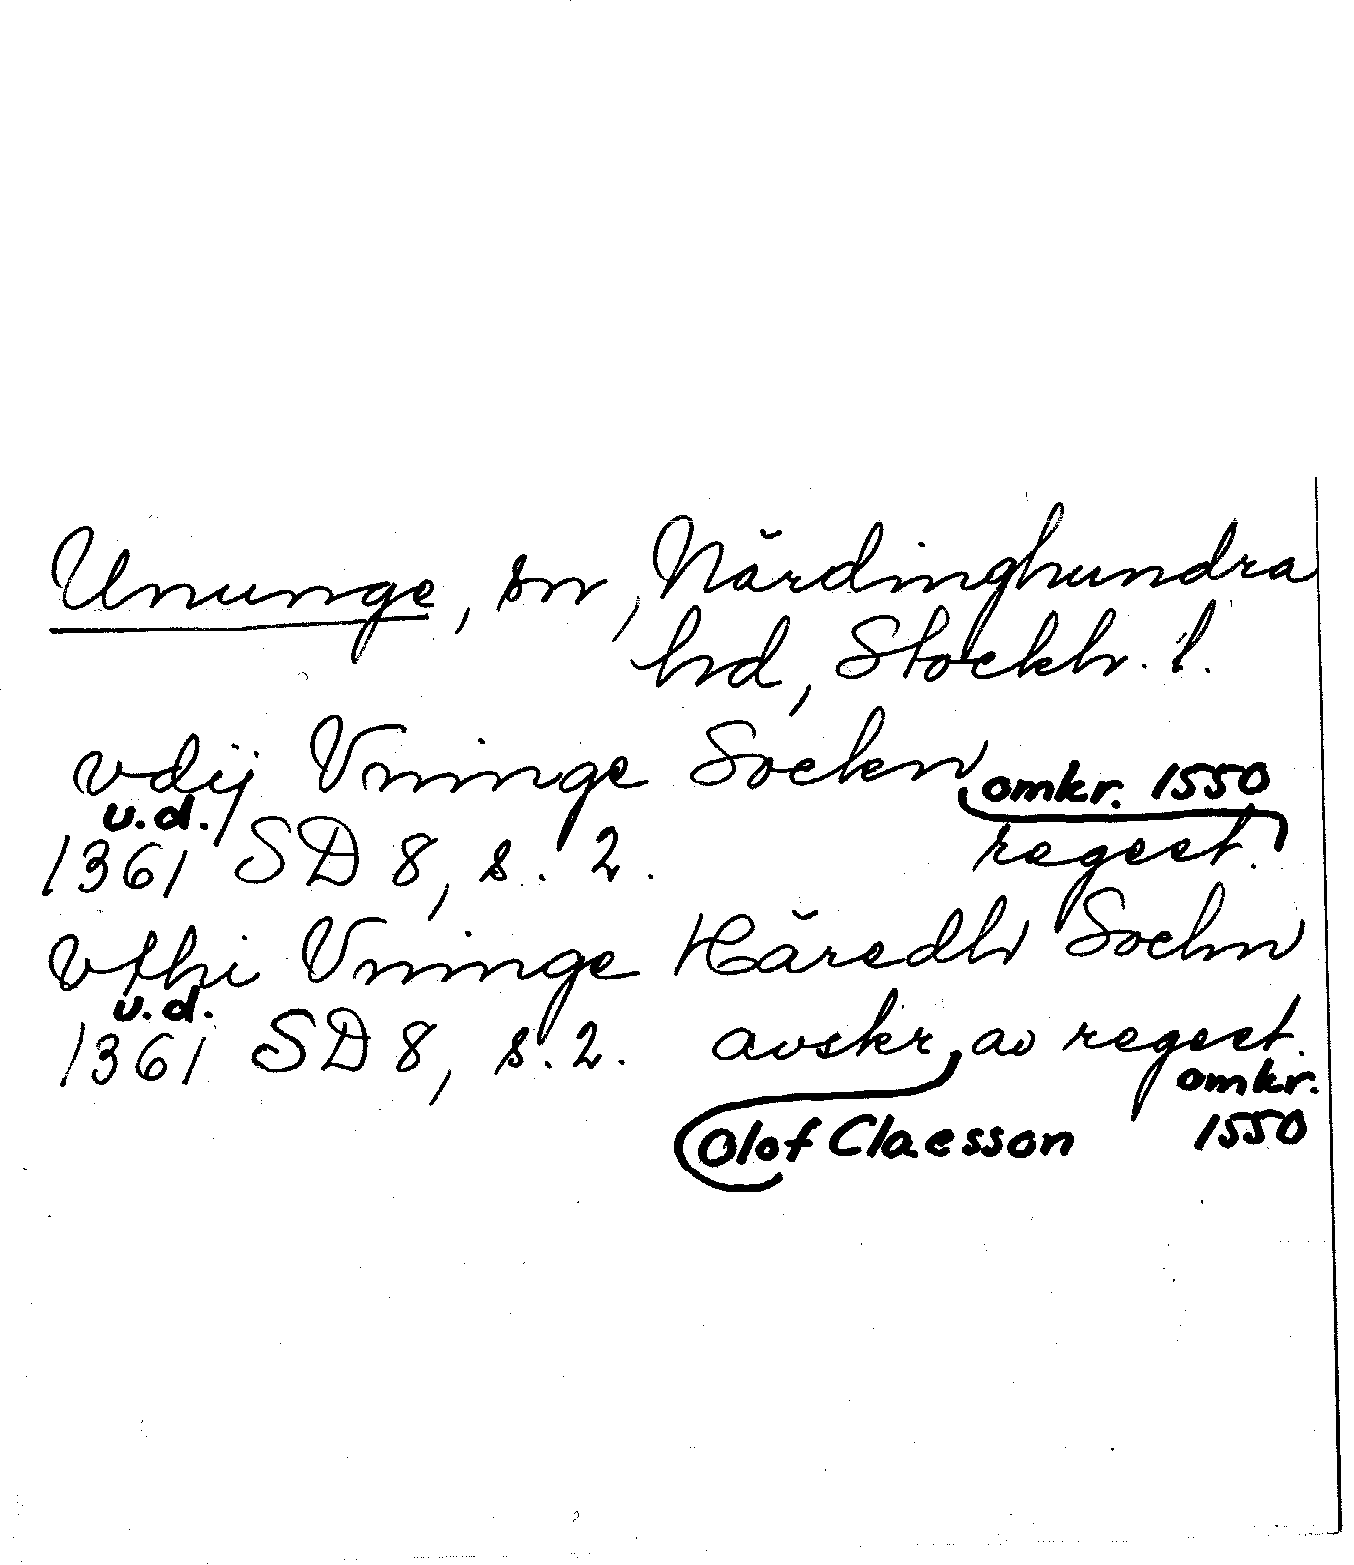 Ununge, sn, Närdinghundra
hd, Stockh. l.
vdij Vninge Sockn
omkr. 1550
u.d.
1361 SD 8, s. 2. regest.
vthi Vninge Häredh Sochn
u.d.
1361 SD 8, s. 2. avskr. av regest.
omkr.
Olof Claesson 1550